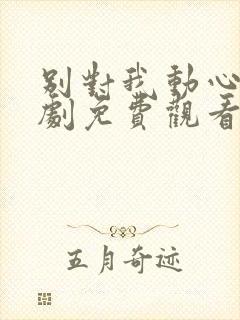 别對我動心
劇免費觀看
五月奇迹